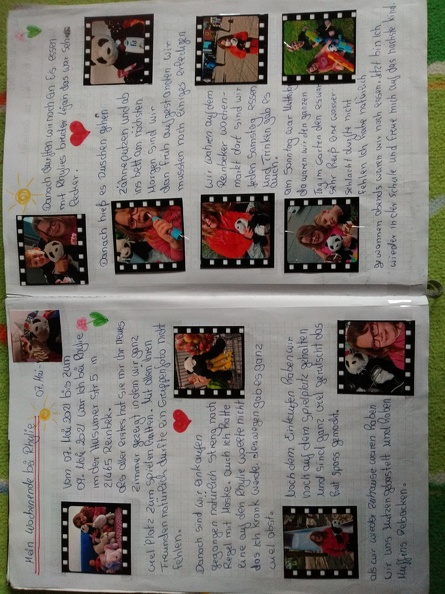 Mein Wochenende bei Phylie 07. Mai-
vom 07. Mai 2021 bis zum
09. Mai 2021 war ich bei Phylie
in der str 5 in
21465 Reinbek.
Als aller erstes hat sie mir ihr neues
Zimmer gezeigt in dem wir ganz
viel Platz zum spielen hatten. Mit allen ihren
Freunden natürlich durfte ein Gruppenfoto nicht
fehlen.
Danach sind wir einkaufen
gegangen natürlich streng nach
Regel mit Maske. auch ich hatte
eine auf den Phylie wollte nicht
das ich krank werde. deswegen gab es ganz
viel obst.
Nach dem Einkaufen haben wir
noch auf dem spielplatz gehalten
und sind ganz viel gerutscht das
hat spass gemacht.
als wir wieder zuhause waren haben
wir uns und haben
Muffins gebacken.
Danach durften wir noch an Eis essen
mit Phylies bruder Logan das war sehr
lecker.
Danach hieß es Zähne
Zähneputzen und ab
ins bett am nächsten
Morgen sind wir
dan früh aufgestanden wir
mussten noch einiges erledigen
Wir waren auf dem
Reinbeker wochen-
markt dort sind wir
jeden Samstag essen
und Trinken gab es
auch.
am Sonntag war
da waren wir den ganzen
Tag im Garten den es war
sehr heiß eine wasser
schlacht durfte nicht
fehlen ich habe natürlich
gewonnen abends waren wir noch essen. Jetzt bin ich
wieder in der schule und freue mich auf das nächste kind